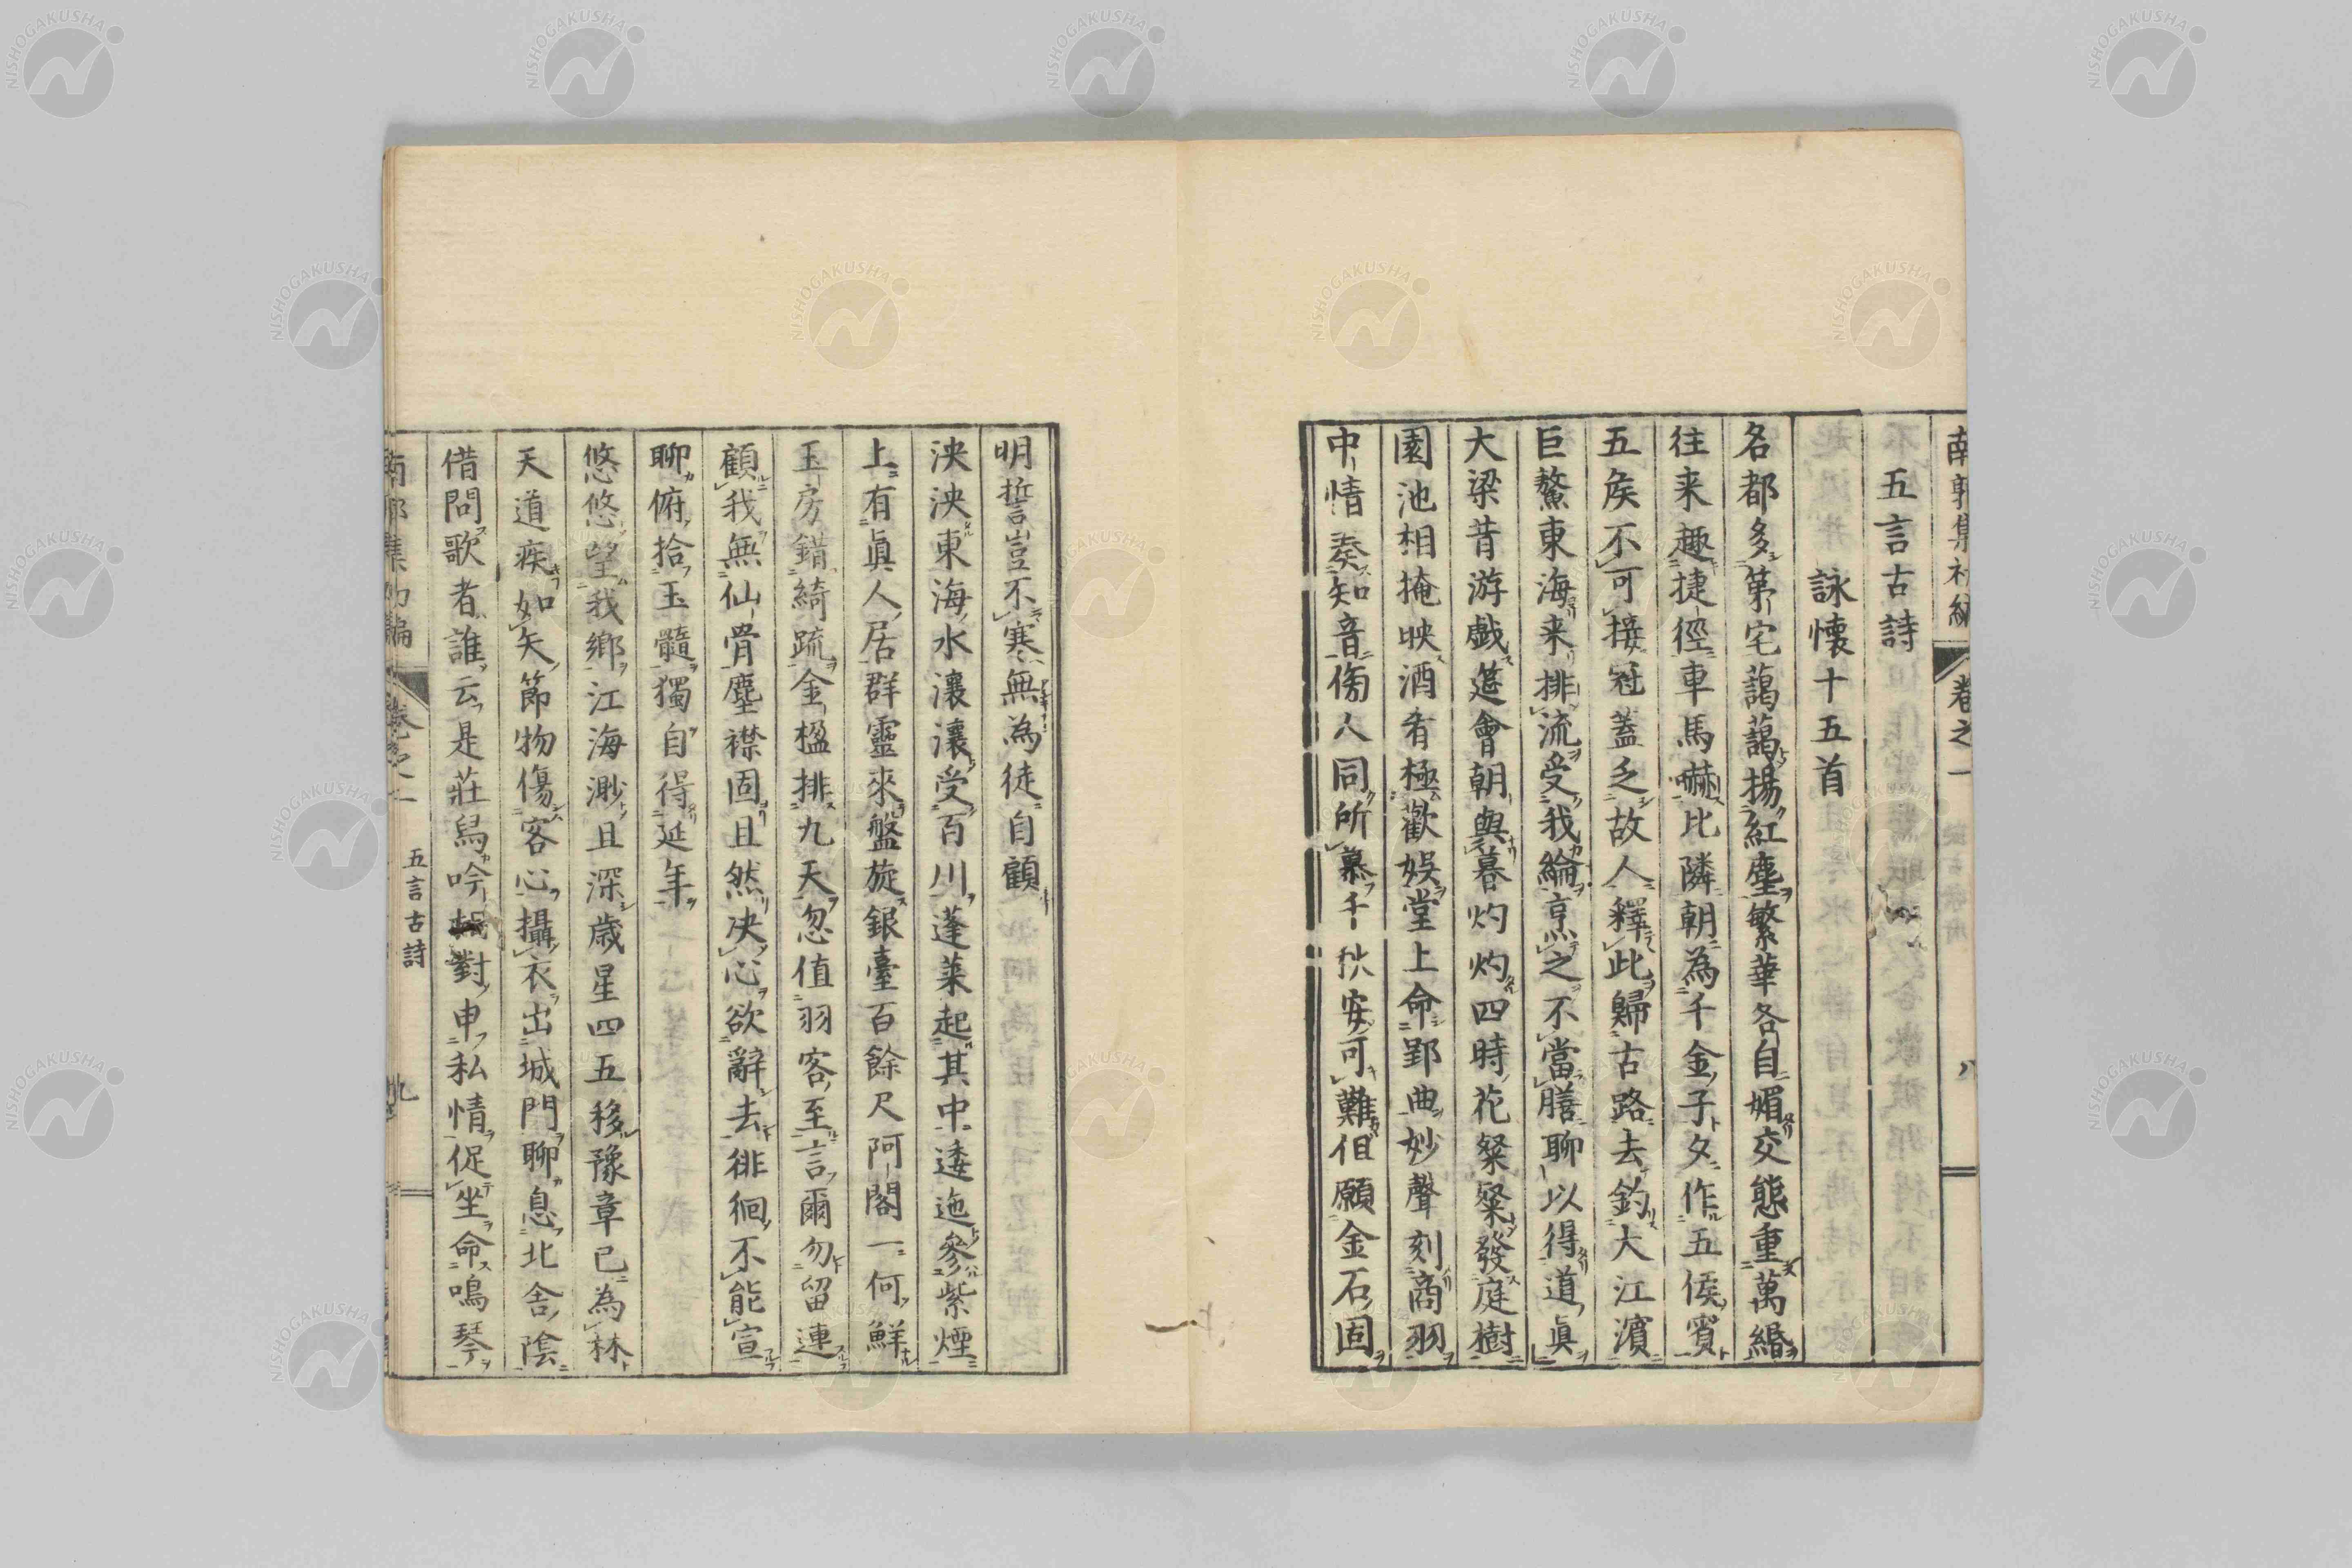 南郭集初編 卷之一 八
五言古詩
詠懷十五首
名都多第宅藹藹揚紅塵繁華各自媚交態重萬緡
往来趣捷徑車馬嚇比隣朝為千金子夕作五侯賓
五矦不可接冠蓋乏故人釋此歸古路去釣大江濱
巨鰲東海来排流受我綸烹之不當膳聊以得道真
大梁昔游戯莚會朝與暮灼灼四時花粲粲發庭樹
園池相掩映酒肴極歡娛堂上命郢曲妙聲刻商羽
中情奏知音傍人同所慕千秋安可難但願金石固
明誓豈不寒無為徒自顧
泱泱東海水瀼瀼受百川蓬萊起其中逶迤參紫煙
上有眞人居群靈來盤旋銀臺百餘尺阿閣一何鮮
玉房錯綺疏金楹排九天忽值羽客至言爾勿留連
顧我無仙骨塵襟固且然决心欲辭去徘徊不能宣
聊俯拾玉髓獨自得延年
悠悠望我鄉江海渺且深歲星四五移豫章已為林
天道疾如矢節物傷客心攝衣出城門聊息北舍陰
借問歌者誰云是莊舄吟 對申私情促坐命鳴琴
南郭集初編 卷之一 五言古詩 九
NISHOGAKUSHA